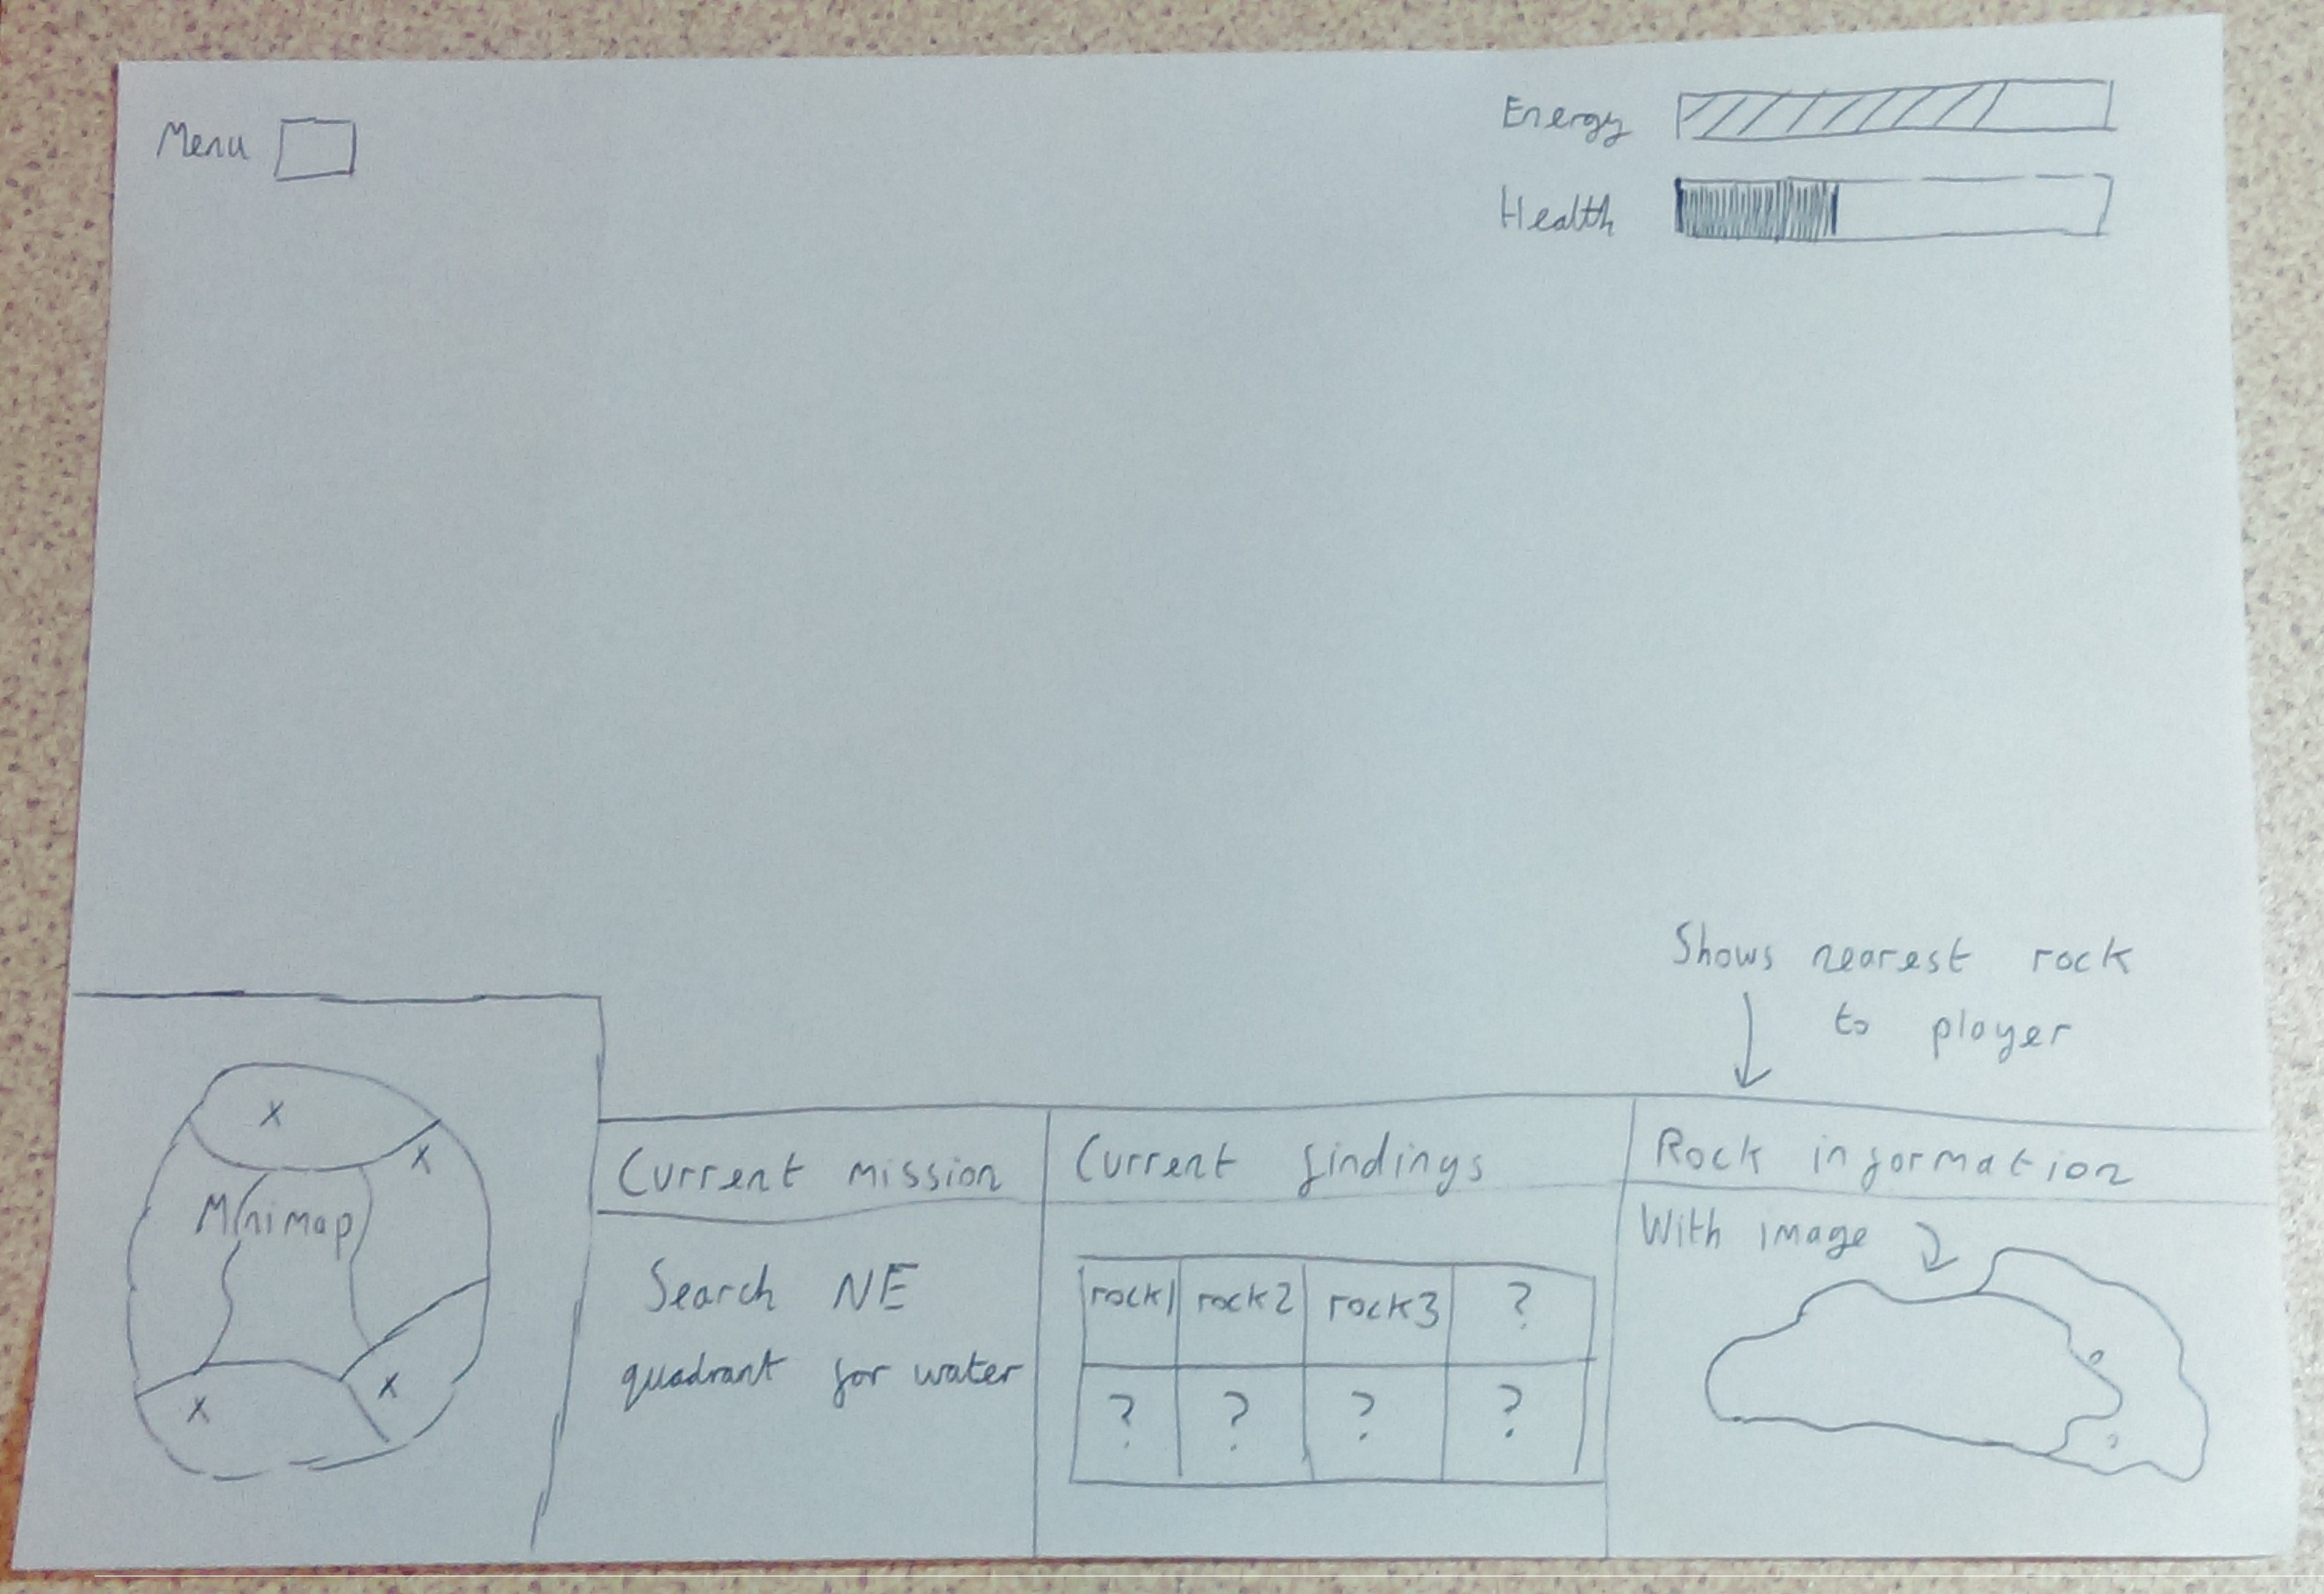 Menu
Energy
Health
Shows nearest rock
to player
Minimap
x
x
x
x
Current mission
Search NE
quadrant for water
Current findings
rock1 rock2 rock3 ?
? ? ? ?
Rock information
With image